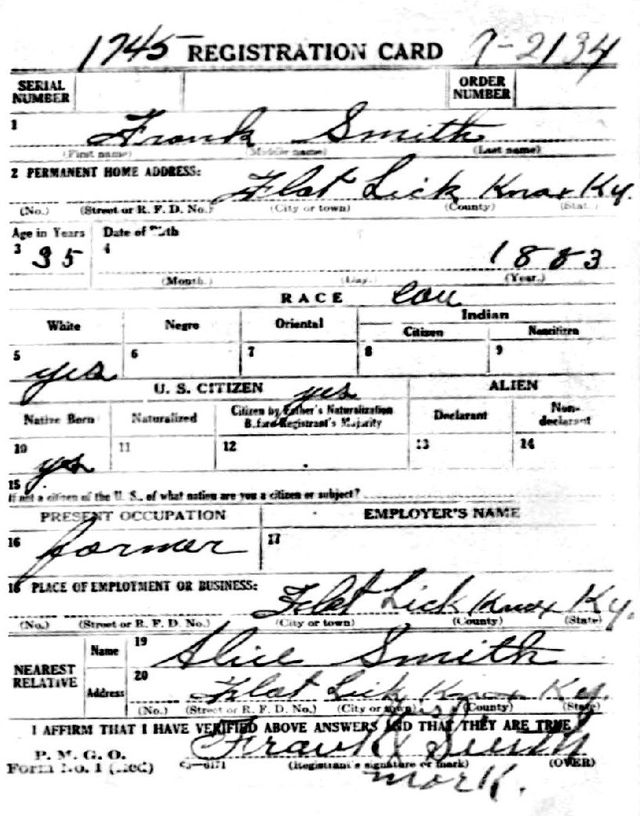 1745 REGISTRATION CARD 7-2134
SERIAL NUMBER ORDER NUMBER
1 Frank Smith
(First name) (Middle name) (Last name)
2 PERMANENT HOME ADDRESS: Flat Lick Knox Ky.
(No.) (Street or R. F. D. No.) (City or town) (County) (State)
Age in Years Date of Birth
3 35 4 1883
(Month.) (Day.) (Year.)
RACE Cau
White Negro Oriental Indian
Citizen Noncitizen
5 yes 6 7 8 9
U. S. CITIZEN yes ALIEN
Native Born Naturalized Citizen by Father's Naturalization Before Registrant's Majority Declarant Non-declarant
10 yes 11 12 13 14
15
If not a citizen of the U. S., of what nation are you a citizen or subject?
PRESENT OCCUPATION EMPLOYER'S NAME
16 farmer 17
18 PLACE OF EMPLOYMENT OR BUSINESS: Flat Lick Knox Ky.
(No.) (Street or R. F. D. No.) (City or town) (County) (State)
NEAREST RELATIVE Name 19 Alice Smith
Address 20 Flat Lick Knox Ky.
(No.) (Street or R. F. D. No.) (City or town) (County) (State)
I AFFIRM THAT I HAVE VERIFIED ABOVE ANSWERS AND THAT THEY ARE TRUE
P. M. G. O.
Form No. 1 (Red) Frank X Smith
(Registrant's signature or mark) (OVER)
mark.